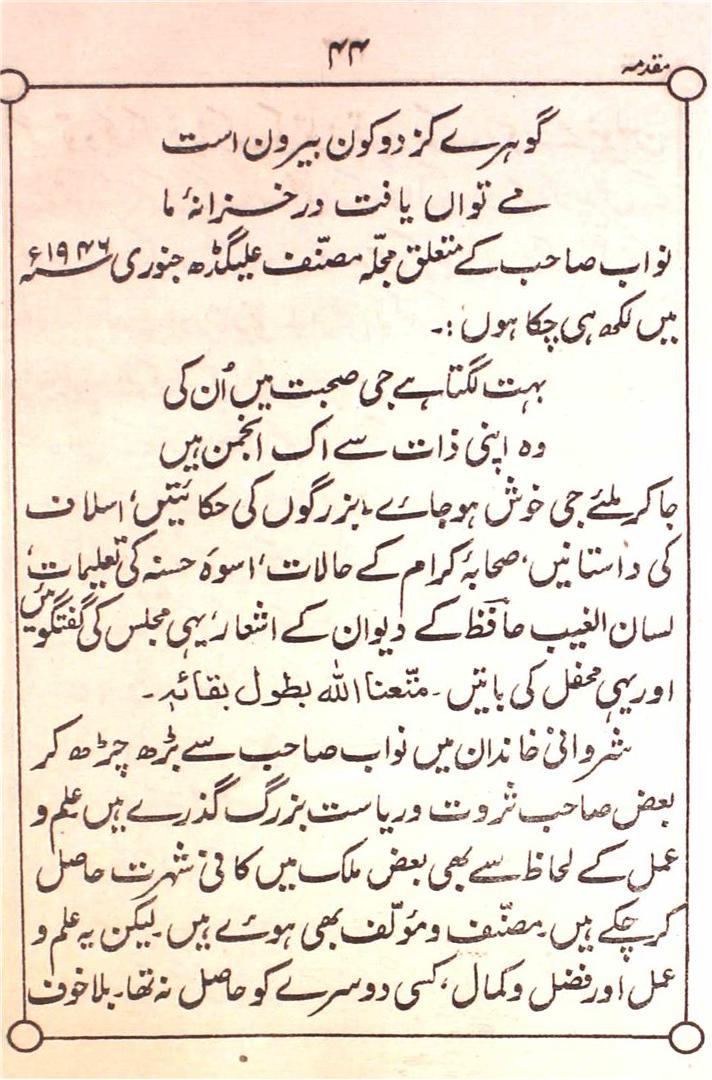 مقدمہ
۴۴
گوہرے کز دوکون بیرون است
مے تواں یافت در خزانۂ ما
نواب صاحب کے متعلق مجلّہ مصنّف علیگڈھ جنوری ۱۹۴۶ء
میں لکھ ہی چکا ہوں :۔
بہت لگتا ہے جی صحبت میں اُن کی
وہ اپنی ذات سے اک انجمن ہیں
جا کر ملئے جی خوش ہوجائے، بزرگوں کی حکائتیں، اسلاف
کی داستانیں، صحابۂ کرام کے حالات، اسوۂ حسنہ کی تعلیمات،
لسان الغیب حافظؔ کے دیوان کے اشعار، یہی مجلس کی گفتگوئیں
اور یہی محفل کی باتیں۔ متّعنا اللہ بطول بقائہٖ۔
شروانی خاندان میں نواب صاحب سے بڑھ چڑھ کر
بعض صاحب ثروت و ریاست بزرگ گذرے ہیں علم و
عمل کے لحاظ سے بھی بعض ملک میں کافی شہرت حاصل
کر چکے ہیں۔ مصنّف و مؤلّف بھی ہوئے ہیں۔ لیکن یہ علم و
عمل اور فضل و کمال، کسی دوسرے کو حاصل نہ تھا۔ بلاخوف